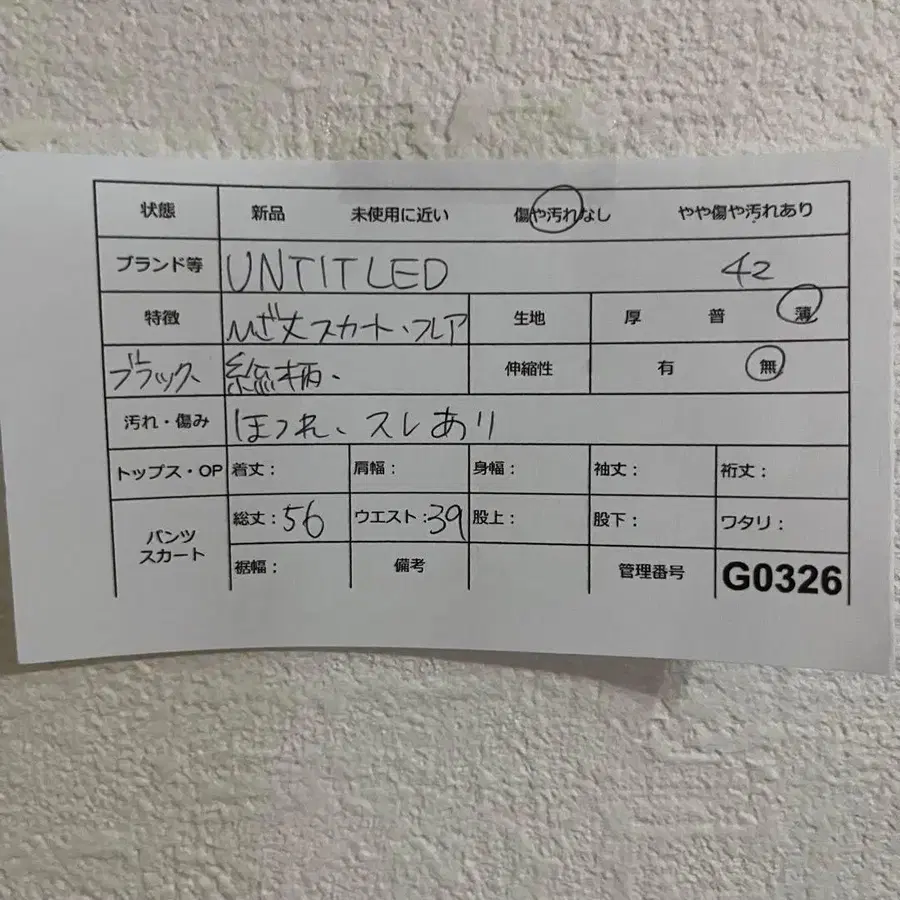 状態 新品 未使用に近い 傷や汚れなし やや傷や汚れあり
ブランド等 UNTITLED 42
特徴 ひざ丈スカート・フレア 生地 厚 普 薄
ブラック 総柄、 伸縮性 有 無
汚れ・傷み ほつれ、スレあり
トップス・OP 着丈： 肩幅： 身幅： 袖丈： 裄丈：
パンツ スカート 総丈：56 ウエスト：39 股上： 股下： ワタリ：
裾幅： 備考 管理番号 G0326